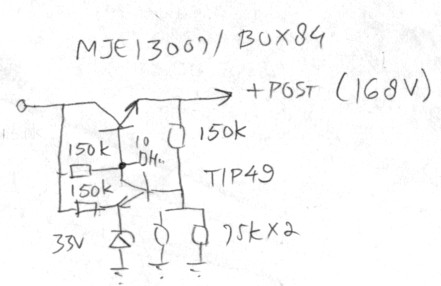 MJE13007/BUX84
+POST (168V)
150k
10
150k
TIP49
150k
33V
75k×2